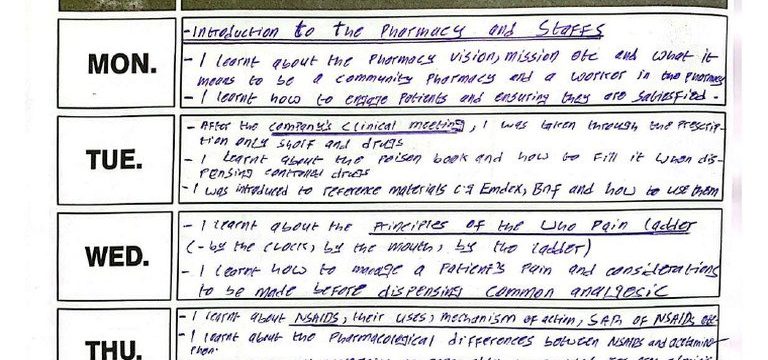 MON.
- Introduction to the Pharmacy and Staffs
- I learnt about the Pharmacy vision, mission etc and what it
means to be a community Pharmacy and a worker in the Pharmacy
- I learnt how to engage Patients and ensuring they are satisfied -
TUE.
- After the company's clinical meeting, I was taken through the Prescrip-
tion only shelf and drugs
- I learnt about the Poison book and how to fill it when dis-
pensing controlled drugs
- I was introduced to reference materials e.g Emdex, Bnf and how to use them
WED.
- I learnt about the Principles of the WHO Pain ladder
(- by the clock, by the mouth, by the ladder)
- I learnt how to manage a Patient's Pain and considerations
to be made before dispensing common analgesic
THU.
- I learnt about NSAIDS, their uses, mechanism of action, of NSAIDs etc
- I learnt about the Pharmacological differences between NSAIDs and acetamin-
ophen